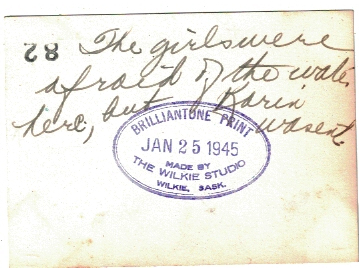 82
The girls were
afraid of the water
here, but Karin
wasent
BRILLIANTONE PRINT
JAN 25 1945
MADE BY
THE WILKIE STUDIO
WILKIE, SASK.